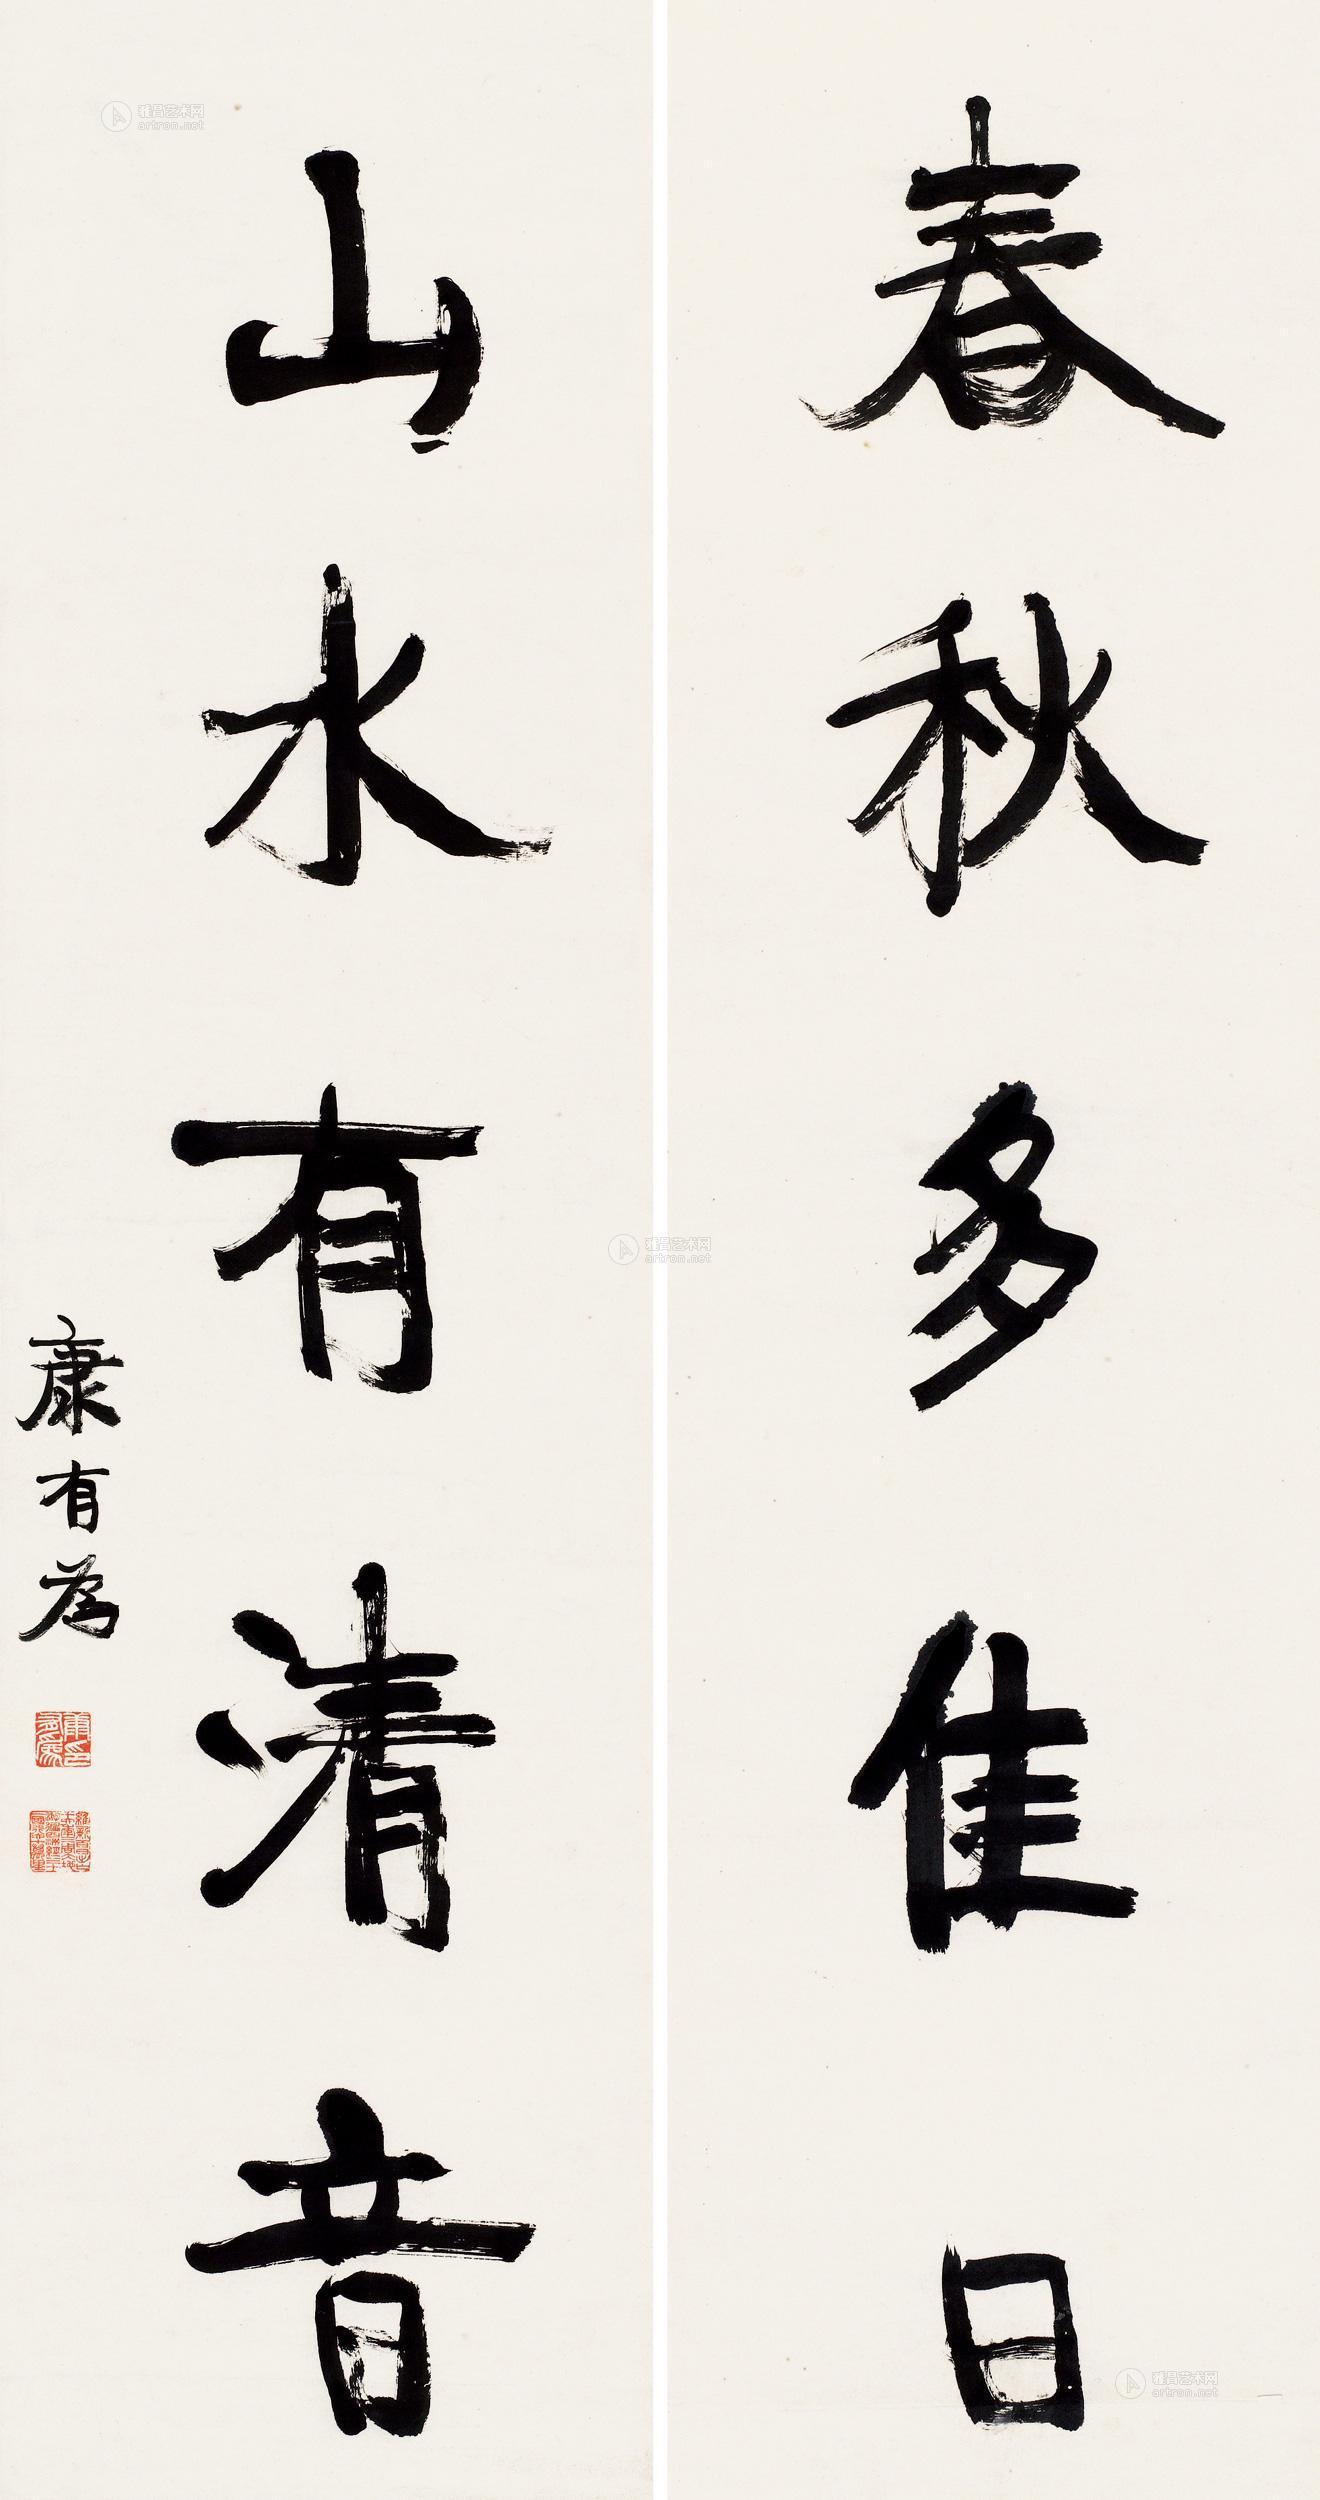 春秋多佳日
山水有清音
康有為
雅昌艺术网
artron.net
雅昌艺术网
artron.net
雅昌艺术网
artron.net